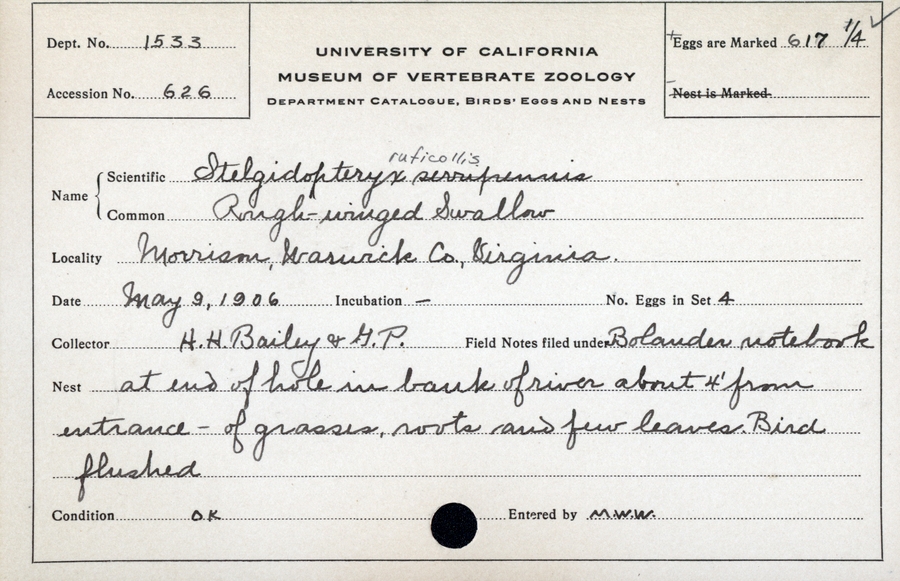 Dept. No. 1533
Accession No. 626
UNIVERSITY OF CALIFORNIA
MUSEUM OF VERTEBRATE ZOOLOGY
DEPARTMENT CATALOGUE, BIRDS' EGGS AND NESTS
Eggs are Marked 617 1/4
Nest is Marked
ruficollis
Name
Scientific Stelgidopteryx serripennis
Common Rough-winged Swallow
Locality Morrison, Warwick Co., Virginia.
Date May 9, 1906 Incubation — No. Eggs in Set 4
Collector H.H. Bailey & G.P. Field Notes filed under Bolander notebook
Nest at end of hole in bank of river about 4' from
entrance - of grasses, roots and few leaves. Bird
flushed
Condition OK Entered by M.W.W.